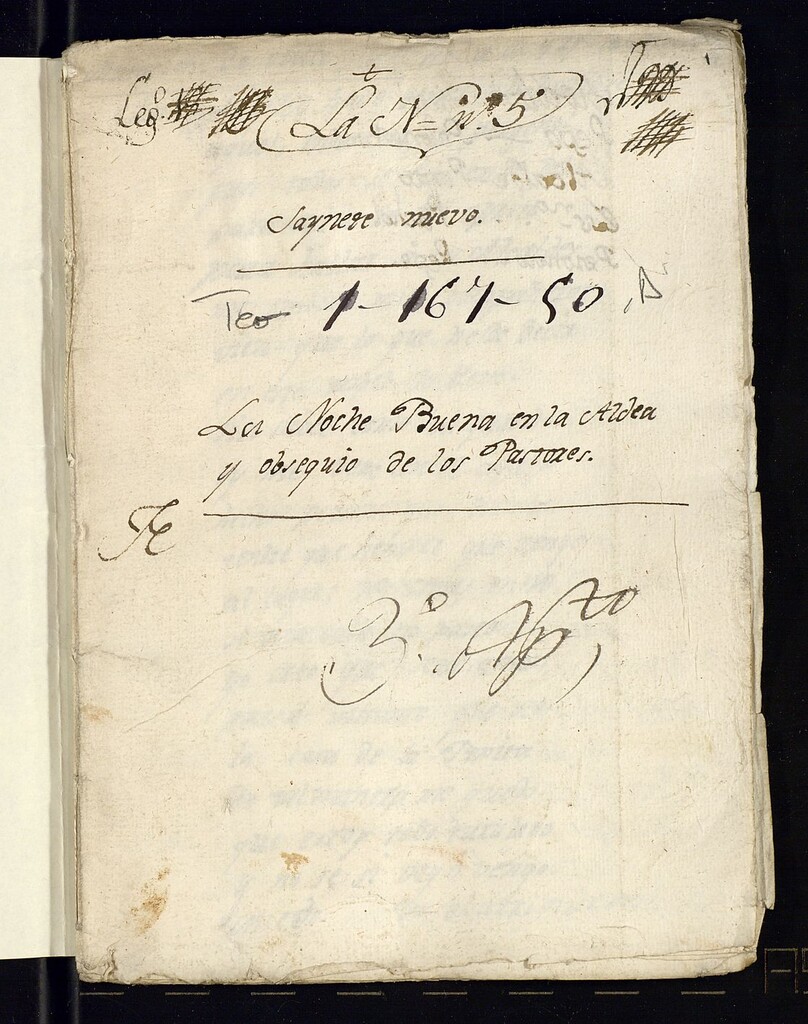 Leg.º
La N= nº. 5
Saynete nuevo.
Teo 1-167-50, A
La Noche Buena en la Aldea
y obsequio de los Pastores.
2º. Apto